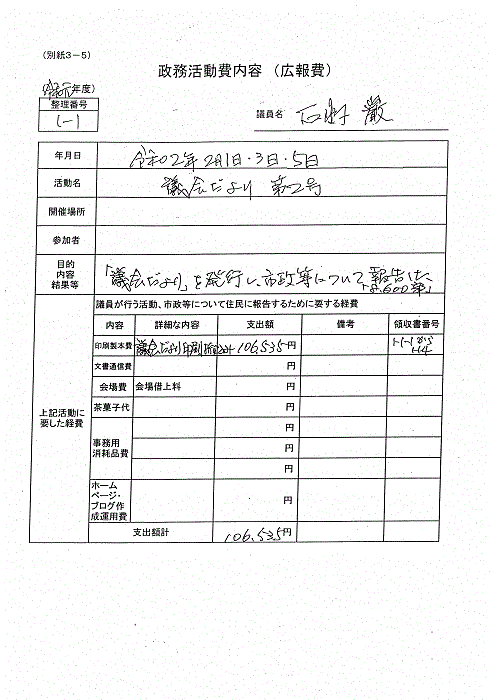 (別紙3-5)
政務活動費内容 (広報費)
年度)
整理番号
1-1
議員名
巌
年月日
令和02年2月1日・3日・5日
活動名
議会だより 第2号
開催場所
参加者
目的
内容
結果等
「議会だより」を発行し、市政等について報告した
上記活動に
要した経費
議員が行う活動、市政等について住民に報告するために要する経費
内容 詳細な内容 支出額 備考 領収書番号
印刷製本費 議会だより印刷 106,535円
文書通信費 円
会場費 会場借上料 円
茶菓子代 円
事務用
消耗品費
円
円
円
ホーム
ページ・
ブログ作
成運用費
円
支出額計 106,535円